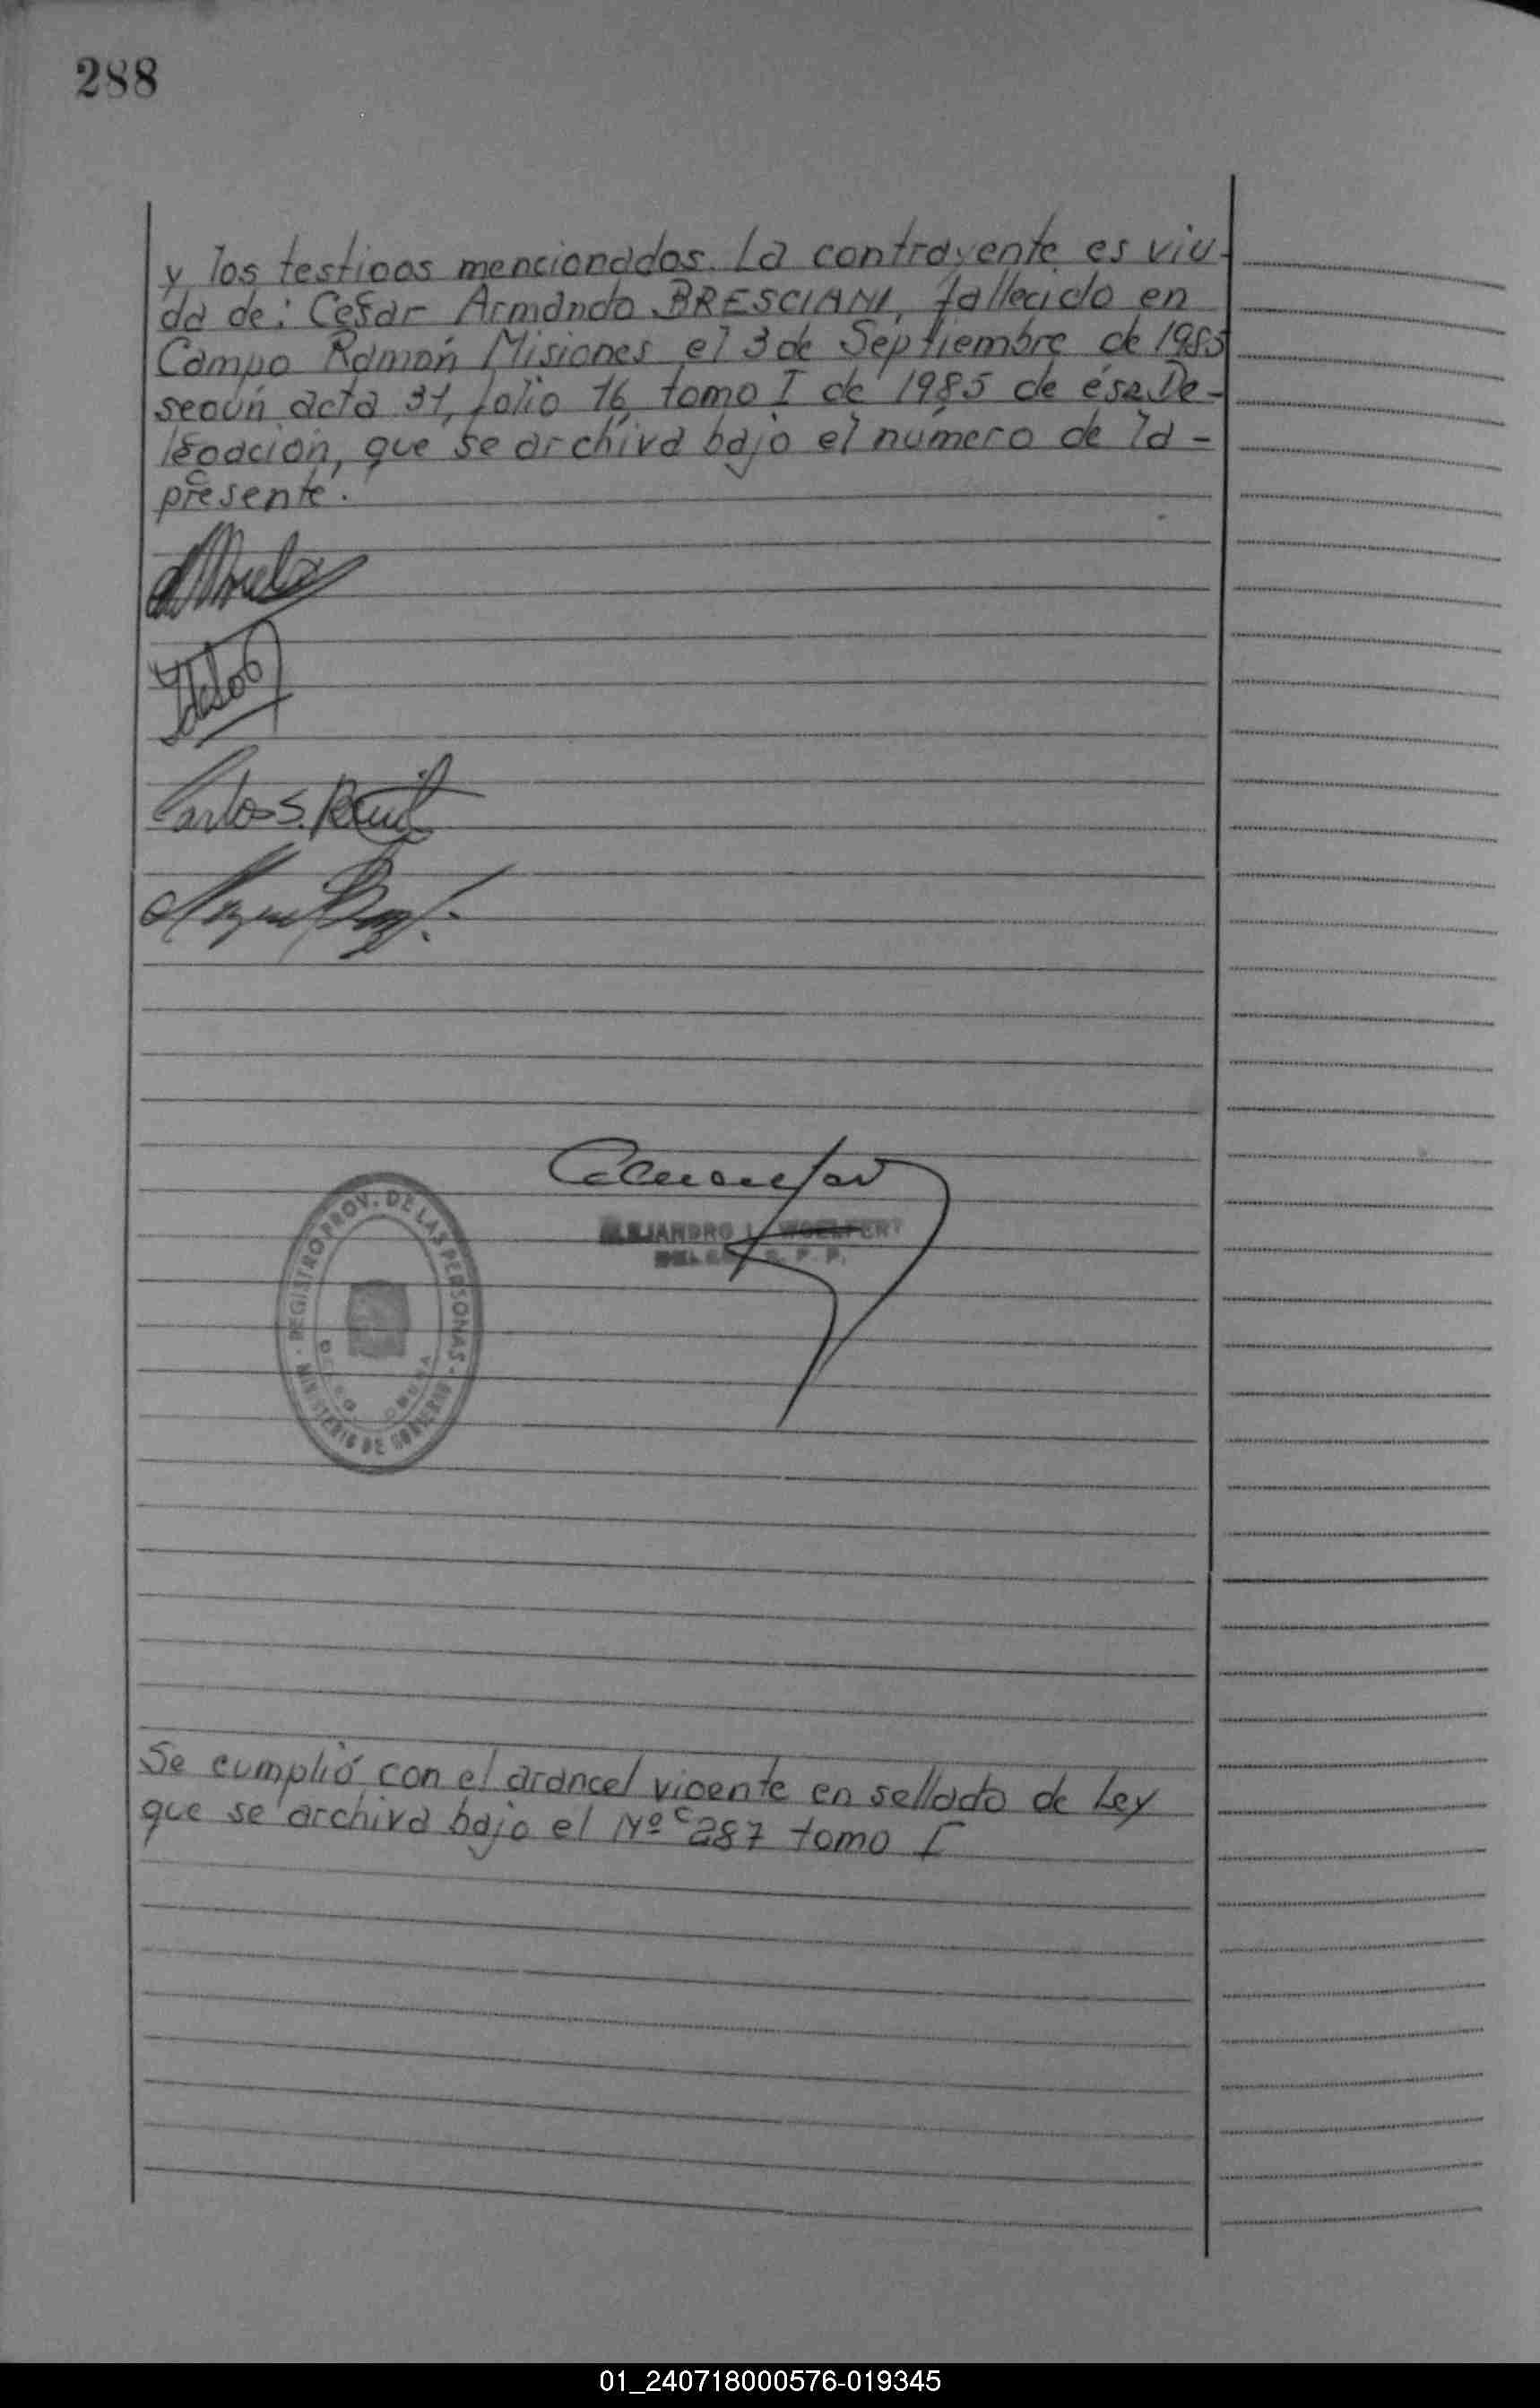 288
y los testigos mencionados. La contrayente es viu-
da de: Cesar Armando BRESCIANI, fallecido en
Campo Ramón Misiones el 3 de Septiembre de 1985
según acta 31, folio 16, tomo I de 1985 de ésa De-
legación, que se archiva bajo el número de la -
presente.
Carlos S.
REGISTRO PROV. DE LAS PERSONAS - MINISTERIO DE GOBIERNO -
ALEJANDRO L. WOELFERT
Se cumplió con el arancel vigente en sellado de Ley
que se archiva bajo el Nº 287 tomo I
01_240718000576-019345